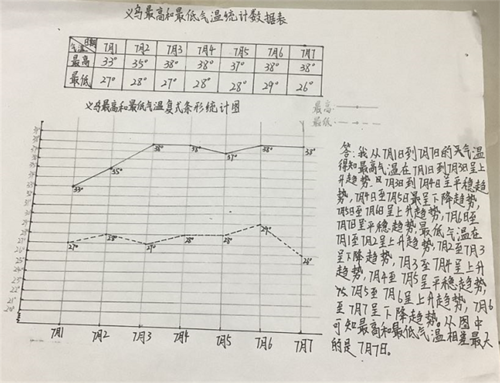 义乌最高和最低气温统计数据表
日期 7月1 7月2 7月3 7月4 7月5 7月6 7月7
气温
最高 33° 35° 38° 38° 37° 38° 38°
最低 27° 28° 27° 28° 28° 29° 26°
义乌最高和最低气温复式条形统计图
最高
最低
38° 38° 37° 38° 38°
35°
33°
29°
27° 28° 27° 28° 28°
26°
7月1 7月2 7月3 7月4 7月5 7月6 7月7
答:我从7月1日到7月7日的天气温
得知最高气温在7月1日到7月3日呈上
升趋势.7月3日到7月4日呈平稳趋
势,7月4日至7月5日是呈下降趋势,
7月5日至7月6日呈上升趋势,7月6日至
7月7日呈平稳趋势,最低气温在
7月1至7月2呈上升趋势,7月2至7月3
呈下降趋势,7月3至7月4呈上升
趋势,7月4至7月5呈平稳趋势
7月5至7月6呈上升趋势,7月6
至7月7呈下降趋势。从图中
可知最高和最低气温相差最大
的是7月7日。